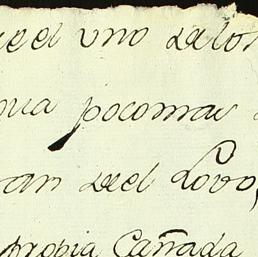 el uno de los
poco mas
an del Lobo,
propia Cañada